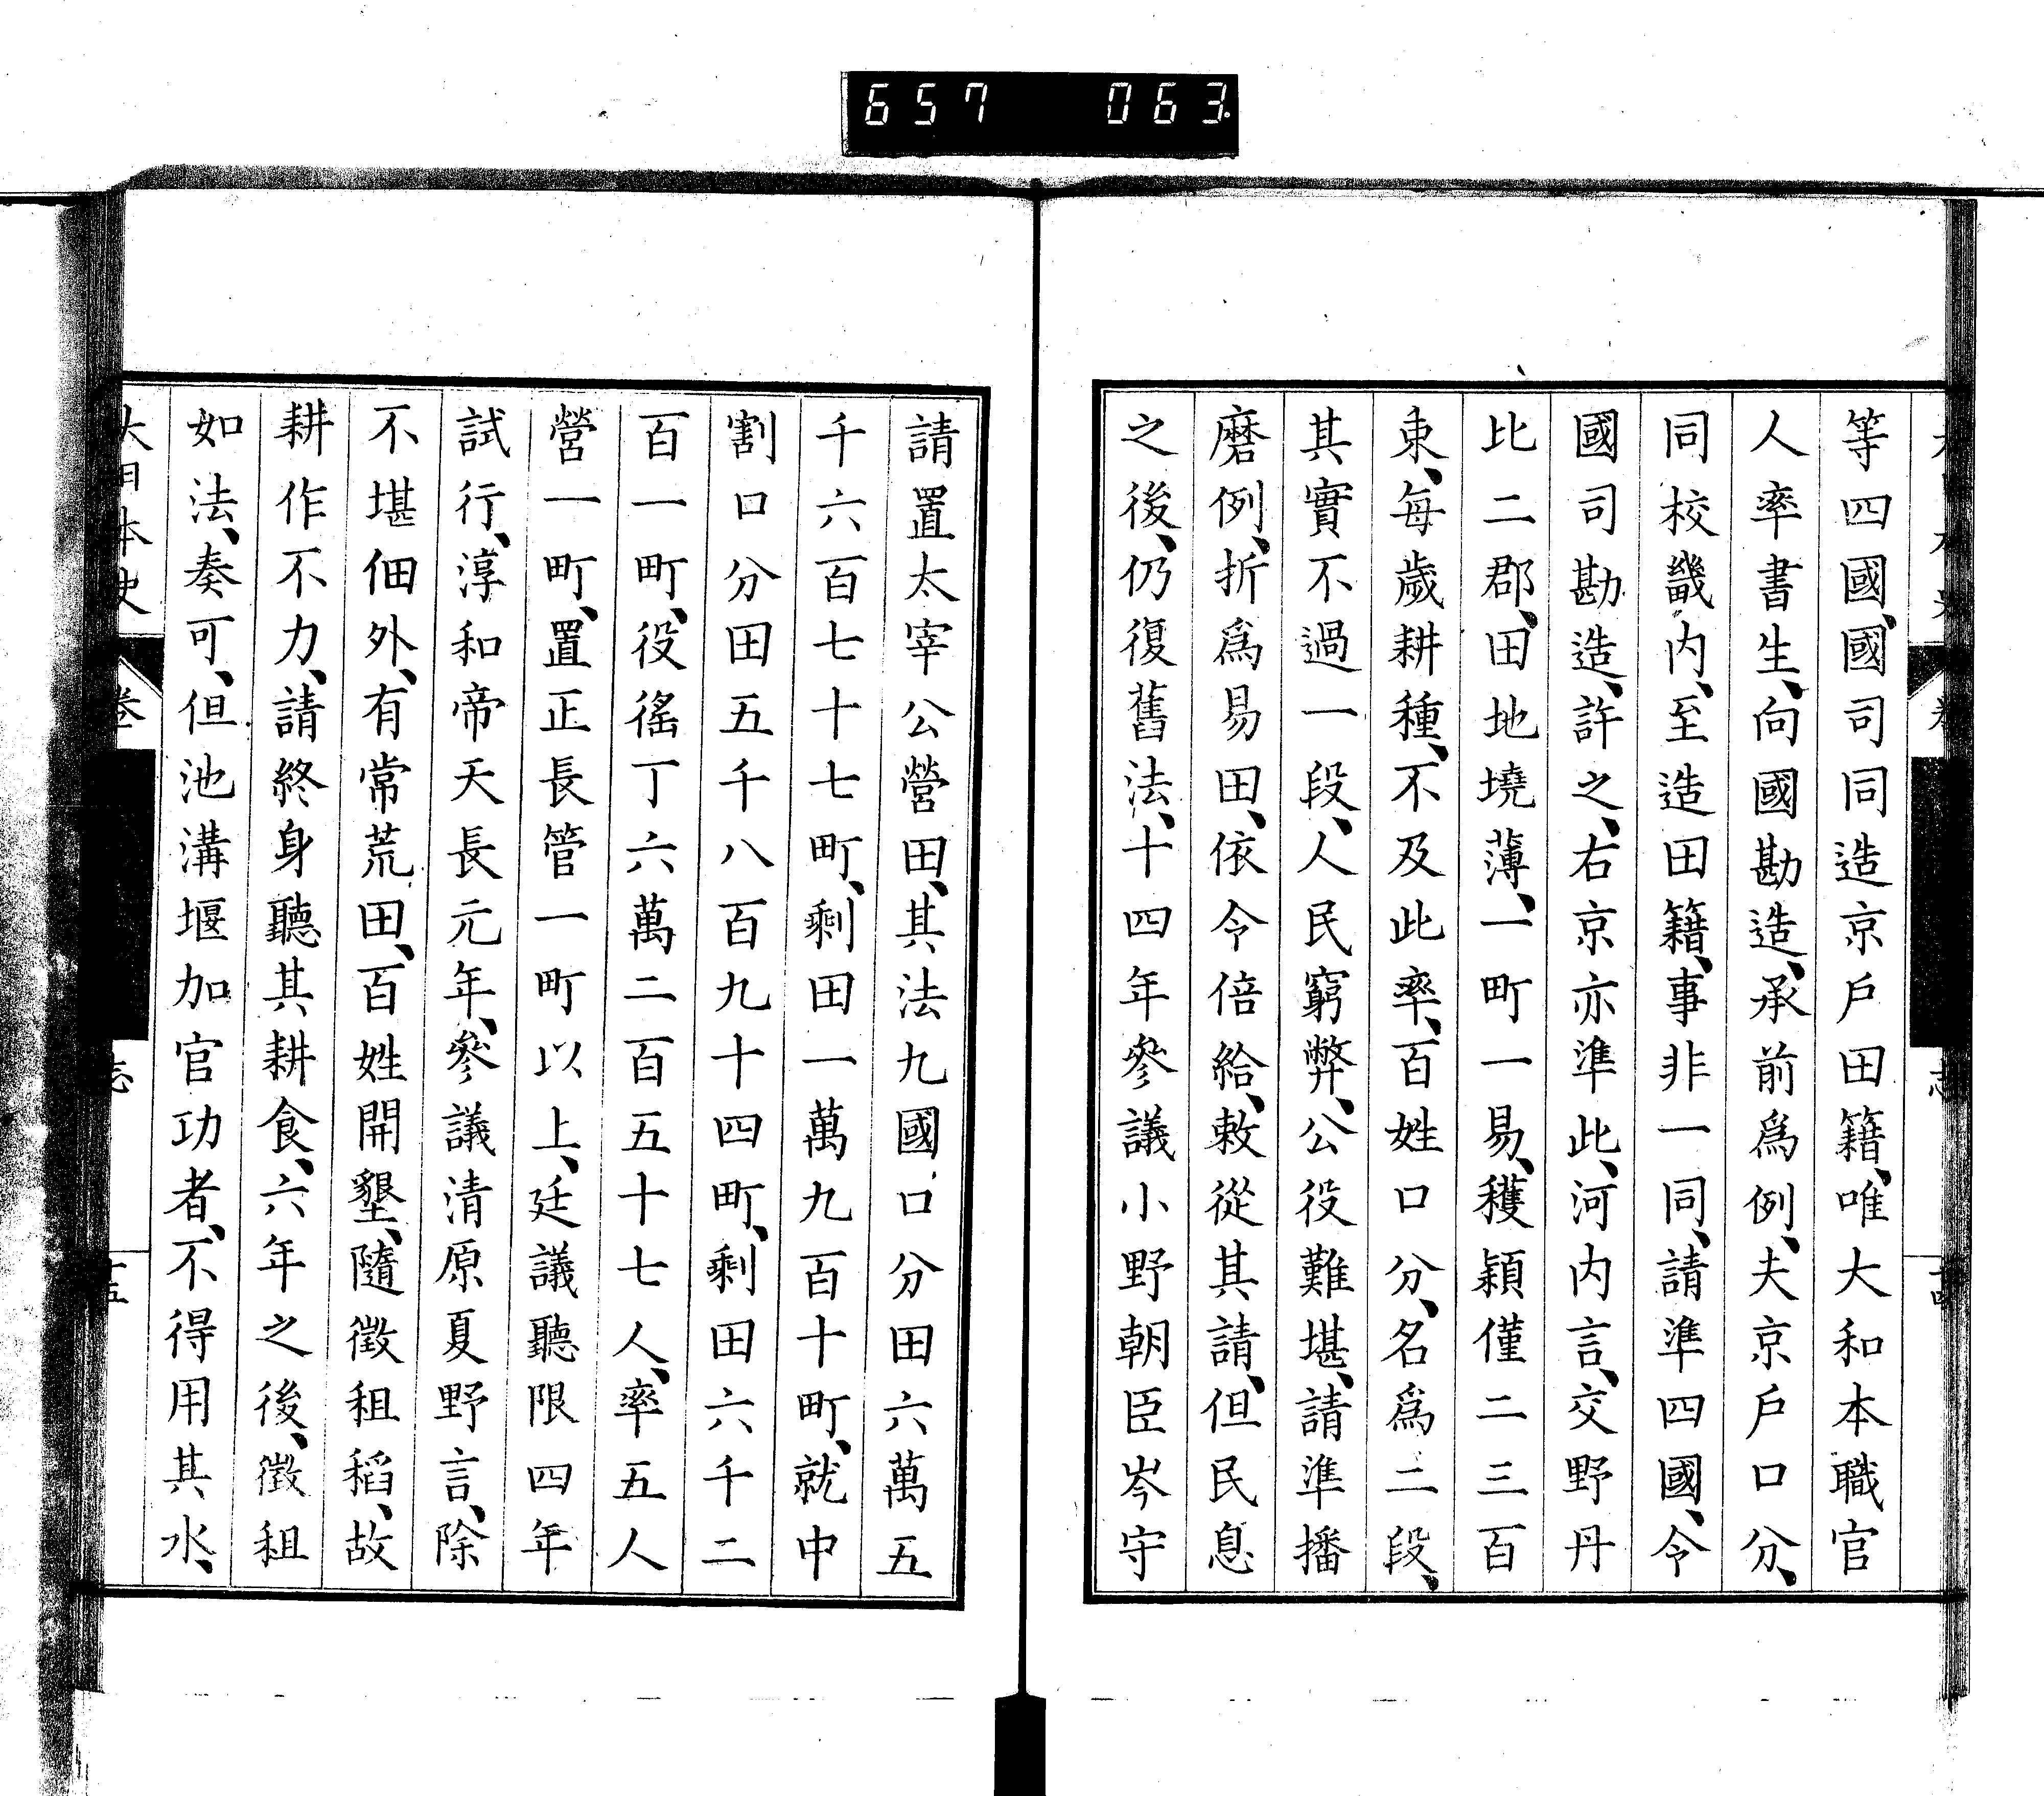 657 063
等四國、國司同造京戶田籍、唯大和本職官
人率書生、向國勘造、承前爲例、夫京戶口分、
同校畿内、至造田籍、事非一同、請準四國、令
國司勘造、許之、右京亦準此、河内言、交野丹
比二郡、田地墝薄、一町一易、穫穎僅二三百
束、每歲耕種、不及此率、百姓口分、名爲二段、
其實不過一段、人民窮弊、公役難堪、請準播
磨例、折爲易田、依令倍給、敕從其請、但民息
之後、仍復舊法、十四年參議小野朝臣岑守
請置太宰公營田、其法九國口分田六萬五
千六百七十七町、剩田一萬九百十町、就中
割口分田五千八百九十四町、剩田六千二
百一町、役徭丁六萬二百五十七人、率五人
營一町、置正長管一町以上、廷議聽限四年
試行、淳和帝天長元年、參議清原夏野言、除
不堪佃外、有常荒田、百姓開墾、隨徵租稻、故
耕作不力、請終身聽其耕食、六年之後、徵租
如法、奏可、但池溝堰加官功者、不得用其水、
大日本史 卷 志 十五